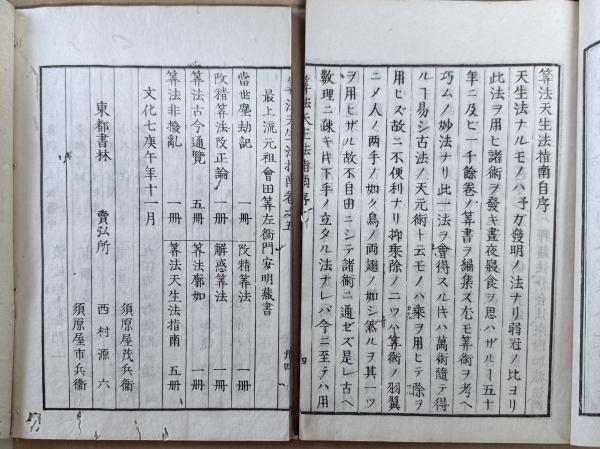 算法天生法指南自序
天生法ナルモノハ予ガ發明ノ法ナリ弱冠ノ比ヨリ
此法ヲ用ヒ諸術ヲ發キ晝夜寢食ヲ思ハザルヿ五十
年ニ及ビ一千餘卷ノ算書ヲ編集ス尤モ算術ヲ考ヘ
巧ムノ妙法ナリ此一法ヲ會得スルキハ萬術隨テ得
ルヿ易シ古法ノ天元術ト云モノハ乘ヲ用ヒテ除ヲ
用ヒズ故ニ不便利ナリ抑乘除ノ二ツハ算術ノ羽翼
ニメ人ノ両手ノ如ク鳥ノ両翅ノ如シ然ルヲ其一ツ
ヲ用ヒザル故不自由ニシテ諸術ニ通ゼズ是レ古ヘ
數理ニ疎キ下手ノ立タル法ナレバ今ニ至テハ用
算法天生法指南序
四
算法天生法指南卷之五
卅四
最上流元祖會田算左衞門安明藏書
當世塵劫記 一冊
改精算法 一冊
改精算法改正論 一冊
解惑算法 一冊
算法古今通覽 五冊
算法廓如 一冊
算法非撥亂 一冊
算法天生法指南 五冊
文化七庚午年十一月
東都書林 賣弘所
須原屋茂兵衞
西村源六
須原屋市兵衞